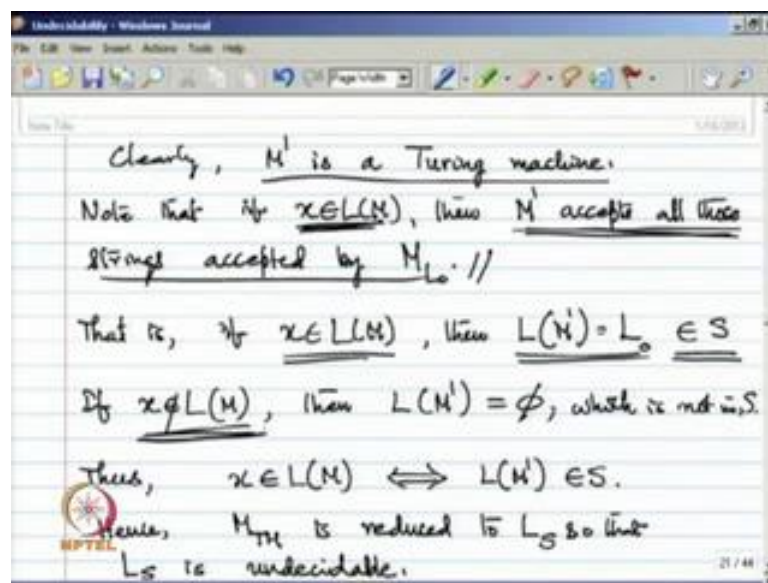 Undecidability - Windows Journal
File Edit View Insert Actions Tools Help
Page Width
Note Title
1/16/2013
Clearly, M' is a Turing machine.
Note that if x∈L(M), then M' accepts all those
strings accepted by M_L₀. //
That is, if x∈L(M), then L(M') = L₀ ∈ S
If x∉L(M), then L(M') = ϕ, which is not in S.
Thus, x∈L(M) ⟺ L(M') ∈ S.
Hence, M_TM is reduced to L_S so that
NPTEL
L_S is undecidable.
21 / 44